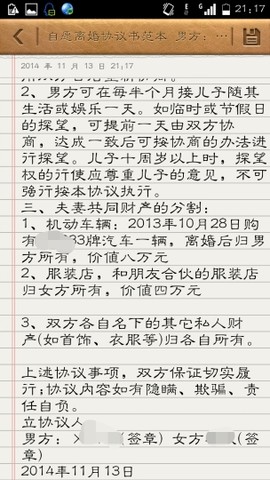 21:17
自愿离婚协议书范本 男方：…
2014 年 11 月 13 日 21:17
2、男方可在每半个月接儿子随其
生活或娱乐一天。如临时或节假日
的探望，可提前一天由双方协
商，达成一致后可按协商的办法进
行探望。儿子十周岁以上时，探望
权的行使应尊重儿子的意见，不可
强行按本协议执行。
三、夫妻共同财产的分割：
1、机动车辆：2013年10月28日购
有 33牌汽车一辆，离婚后归男
方所有，价值八万元
2、服装店，和朋友合伙的服装店
归女方所有，价值四万元
3、双方各自名下的其它私人财
产(如首饰、衣服等)归各自所有。
上述协议事项，双方保证切实履
行;协议内容如有隐瞒、欺骗、责
任自负。
立协议人
男方： (签章) 女方 (签
章)
2014年11月13日